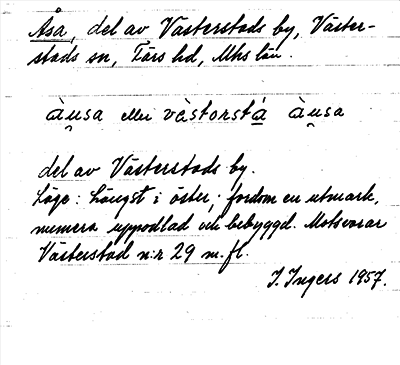 Åsa, del av Västerstads by, Väster-
stads sn, Färs hd, Mhs län.
àu̯sa eller västorstá̱ àu̯sa
del av Västerstads by.
Läge: Längst i öster; fordom en utmark,
numera uppodlad och bebyggd. Motsvarar
Västerstad n:r 29 m. fl.
I. Ingers 1957.